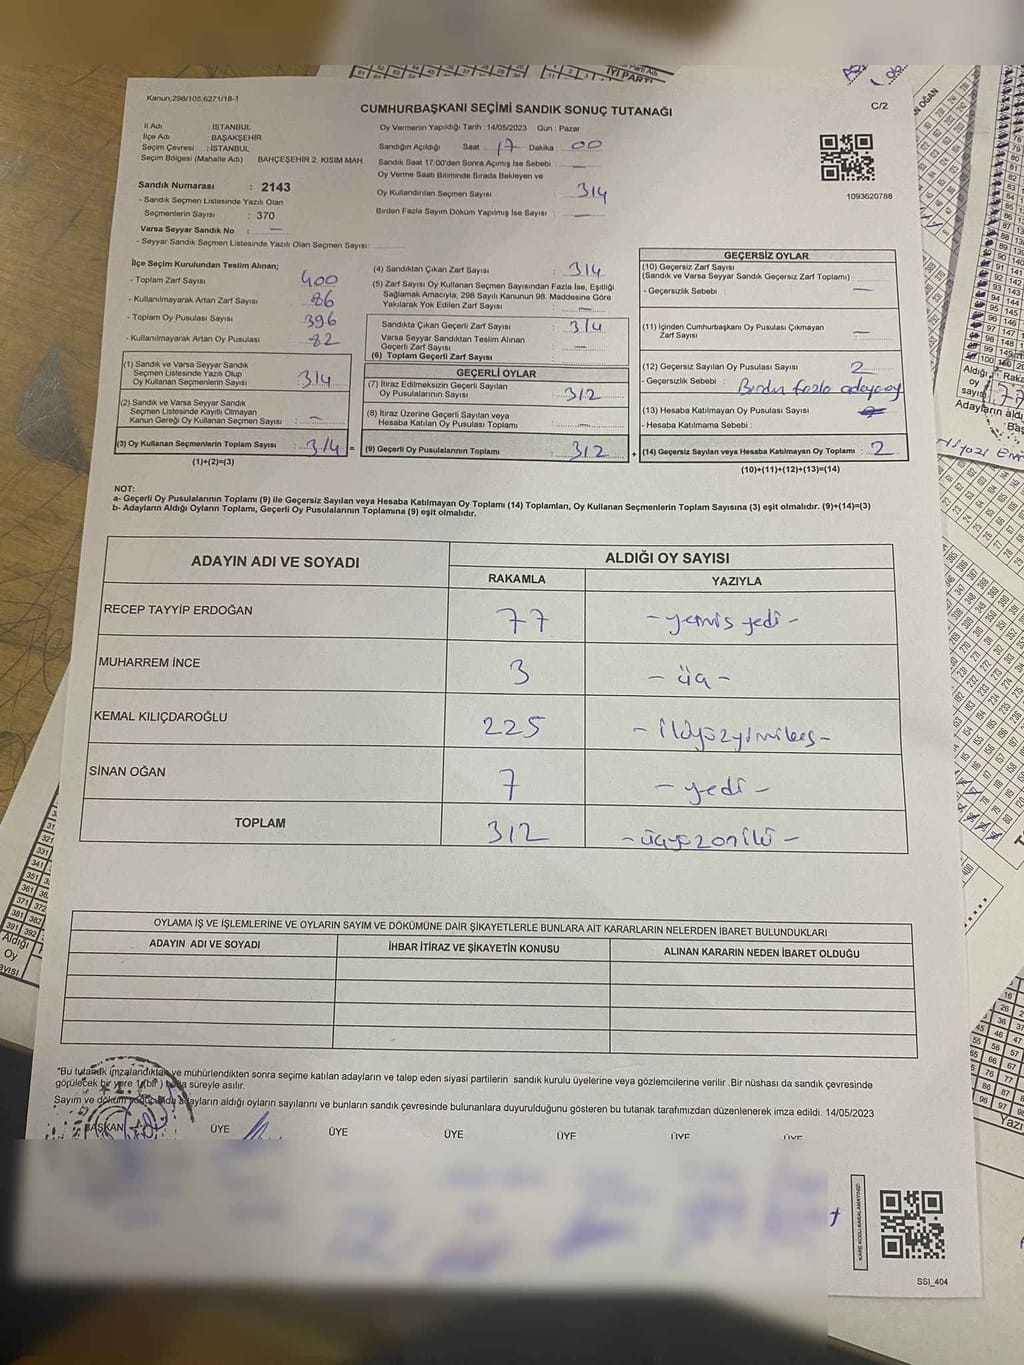 Kanun,298/105,6271/18-1
CUMHURBAŞKANI SEÇİMİ SANDIK SONUÇ TUTANAĞI
C/2
İl Adı : İSTANBUL
İlçe Adı : BAŞAKŞEHİR
Seçim Çevresi : İSTANBUL
Seçim Bölgesi (Mahalle Adı) BAHÇEŞEHİR 2. KISIM MAH.
Sandık Numarası : 2143
- Sandık Seçmen Listesinde Yazılı Olan
Seçmenlerin Sayısı : 370
Varsa Seyyar Sandık No : —
- Seyyar Sandık Seçmen Listesinde Yazılı Olan Seçmen Sayısı:
Oy Vermenin Yapıldığı Tarih : 14/05/2023 Gün : Pazar
Sandığın Açıldığı Saat : 17 Dakika : 00
Sandık Saat 17:00'den Sonra Açımış İse Sebebi : —
Oy Verme Saati Bitiminde Sırada Bekleyen ve
Oy Kullandırılan Seçmen Sayısı : 314
Birden Fazla Sayım Döküm Yapılmış İse Sayısı : —
1093620788
İlçe Seçim Kurulundan Teslim Alınan;
- Toplam Zarf Sayısı : 400
- Kullanılmayarak Artan Zarf Sayısı : 86
- Toplam Oy Pusulası Sayısı : 396
- Kullanılmayarak Artan Oy Pusulası : 82
(1) Sandık ve Varsa Seyyar Sandık
Seçmen Listesinde Yazılı Olup
Oy Kullanan Seçmenlerin Sayısı : 314
(2) Sandık ve Varsa Seyyar Sandık
Seçmen Listesinde Kayıtlı Olmayan
Kanun Gereği Oy Kullanan Seçmen Sayısı : —
(3) Oy Kullanan Seçmenlerin Toplam Sayısı : 314 =
(1)+(2)=(3)
(4) Sandıktan Çıkan Zarf Sayısı : 314
(5) Zarf Sayısı Oy Kullanan Seçmen Sayısından Fazla İse, Eşitliği
Sağlamak Amacıyla, 298 Sayılı Kanunun 98. Maddesine Göre
Yakılarak Yok Edilen Zarf Sayısı : —
Sandıkta Çıkan Geçerli Zarf Sayısı : 314
Varsa Seyyar Sandıktan Teslim Alınan
Geçerli Zarf Sayısı : —
(6) Toplam Geçerli Zarf Sayısı :
GEÇERLİ OYLAR
(7) İtiraz Edilmeksizin Geçerli Sayılan
Oy Pusulalarının Sayısı : 312
(8) İtiraz Üzerine Geçerli Sayılan veya
Hesaba Katılan Oy Pusulası Toplamı : —
(9) Geçerli Oy Pusulalarının Toplamı : 312 +
GEÇERSİZ OYLAR
(10) Geçersiz Zarf Sayısı
(Sandık ve Varsa Seyyar Sandık Geçersiz Zarf Toplamı) :
- Geçersizlik Sebebi : —
(11) İçinden Cumhurbaşkanı Oy Pusulası Çıkmayan
Zarf Sayısı : —
(12) Geçersiz Sayılan Oy Pusulası Sayısı : 2
- Geçersizlik Sebebi :
(13) Hesaba Katılmayan Oy Pusulası Sayısı :
- Hesaba Katılmama Sebebi :
(14) Geçersiz Sayılan veya Hesaba Katılmayan Oy Toplamı : 2
(10)+(11)+(12)+(13)=(14)
NOT:
a- Geçerli Oy Pusulalarının Toplamı (9) ile Geçersiz Sayılan veya Hesaba Katılmayan Oy Toplamı (14) Toplamları, Oy Kullanan Seçmenlerin Toplam Sayısına (3) eşit olmalıdır. (9)+(14)=(3)
b- Adayların Aldığı Oyların Toplamı, Geçerli Oy Pusulalarının Toplamına (9) eşit olmalıdır.
ADAYIN ADI VE SOYADI
ALDIĞI OY SAYISI
RAKAMLA YAZIYLA
RECEP TAYYİP ERDOĞAN 77 - yemiş yedi -
MUHARREM İNCE 3 - üç -
KEMAL KILIÇDAROĞLU 225 - ikiyüzyirmibeş -
SİNAN OĞAN 7 - yedi -
TOPLAM 312 - üçyüzoniki -
OYLAMA İŞ VE İŞLEMLERİNE VE OYLARIN SAYIM VE DÖKÜMÜNE DAİR ŞİKAYETLERLE BUNLARA AİT KARARLARIN NELERDEN İBARET BULUNDUKLARI
ADAYIN ADI VE SOYADI İHBAR İTİRAZ VE ŞİKAYETİN KONUSU ALINAN KARARIN NEDEN İBARET OLDUĞU
*Bu tutanak imzalandıktan ve mühürlendikten sonra seçime katılan adayların ve talep eden siyasi partilerin sandık kurulu üyelerine veya gözlemcilerine verilir .Bir nüshası da sandık çevresinde
görülecek bir yere 1(bir) hafta süreyle asılır.
Sayım ve döküm sonucunda adayların aldığı oyların sayılarını ve bunların sandık çevresinde bulunanlara duyurulduğunu gösteren bu tutanak tarafımızdan düzenlenerek imza edildi. 14/05/2023
BAŞKAN ÜYE ÜYE ÜYE ÜYE ÜYE ÜYE
KARE KODU KARALAMAYINIZ!
SSI_404